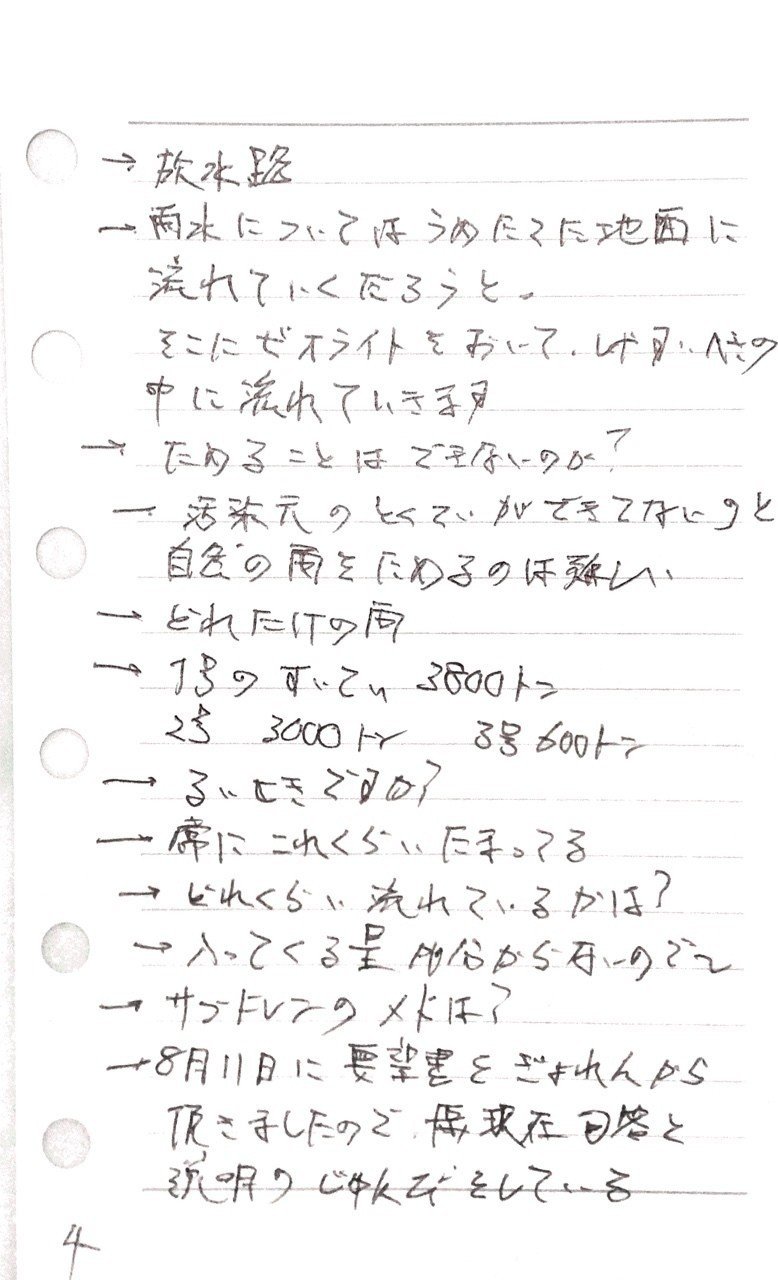 → 放水路
→ 雨水についてはうめたてた地面に
流れていくだろうと。
そこにゼオライトをおいて、しゃすいへきの
中に流れていきます
→ ためることはできないのか?
→ 汚染元のとくていができてないのと
自然の雨をためるのは難しい
→ どれだけの雨
→ 1号のすいてい 3800トン
2号 3000トン 3号 600トン
→ るいせきですか?
→ 常にこれくらいたまってる
→ どれくらい流れているかは?
→ 入ってくる量が分からないので
→ サブドレンのメドは?
→ 8月11日に要望書をぎょれんから
頂きましたので、現在回答と
説明のじゅんびをしている
4